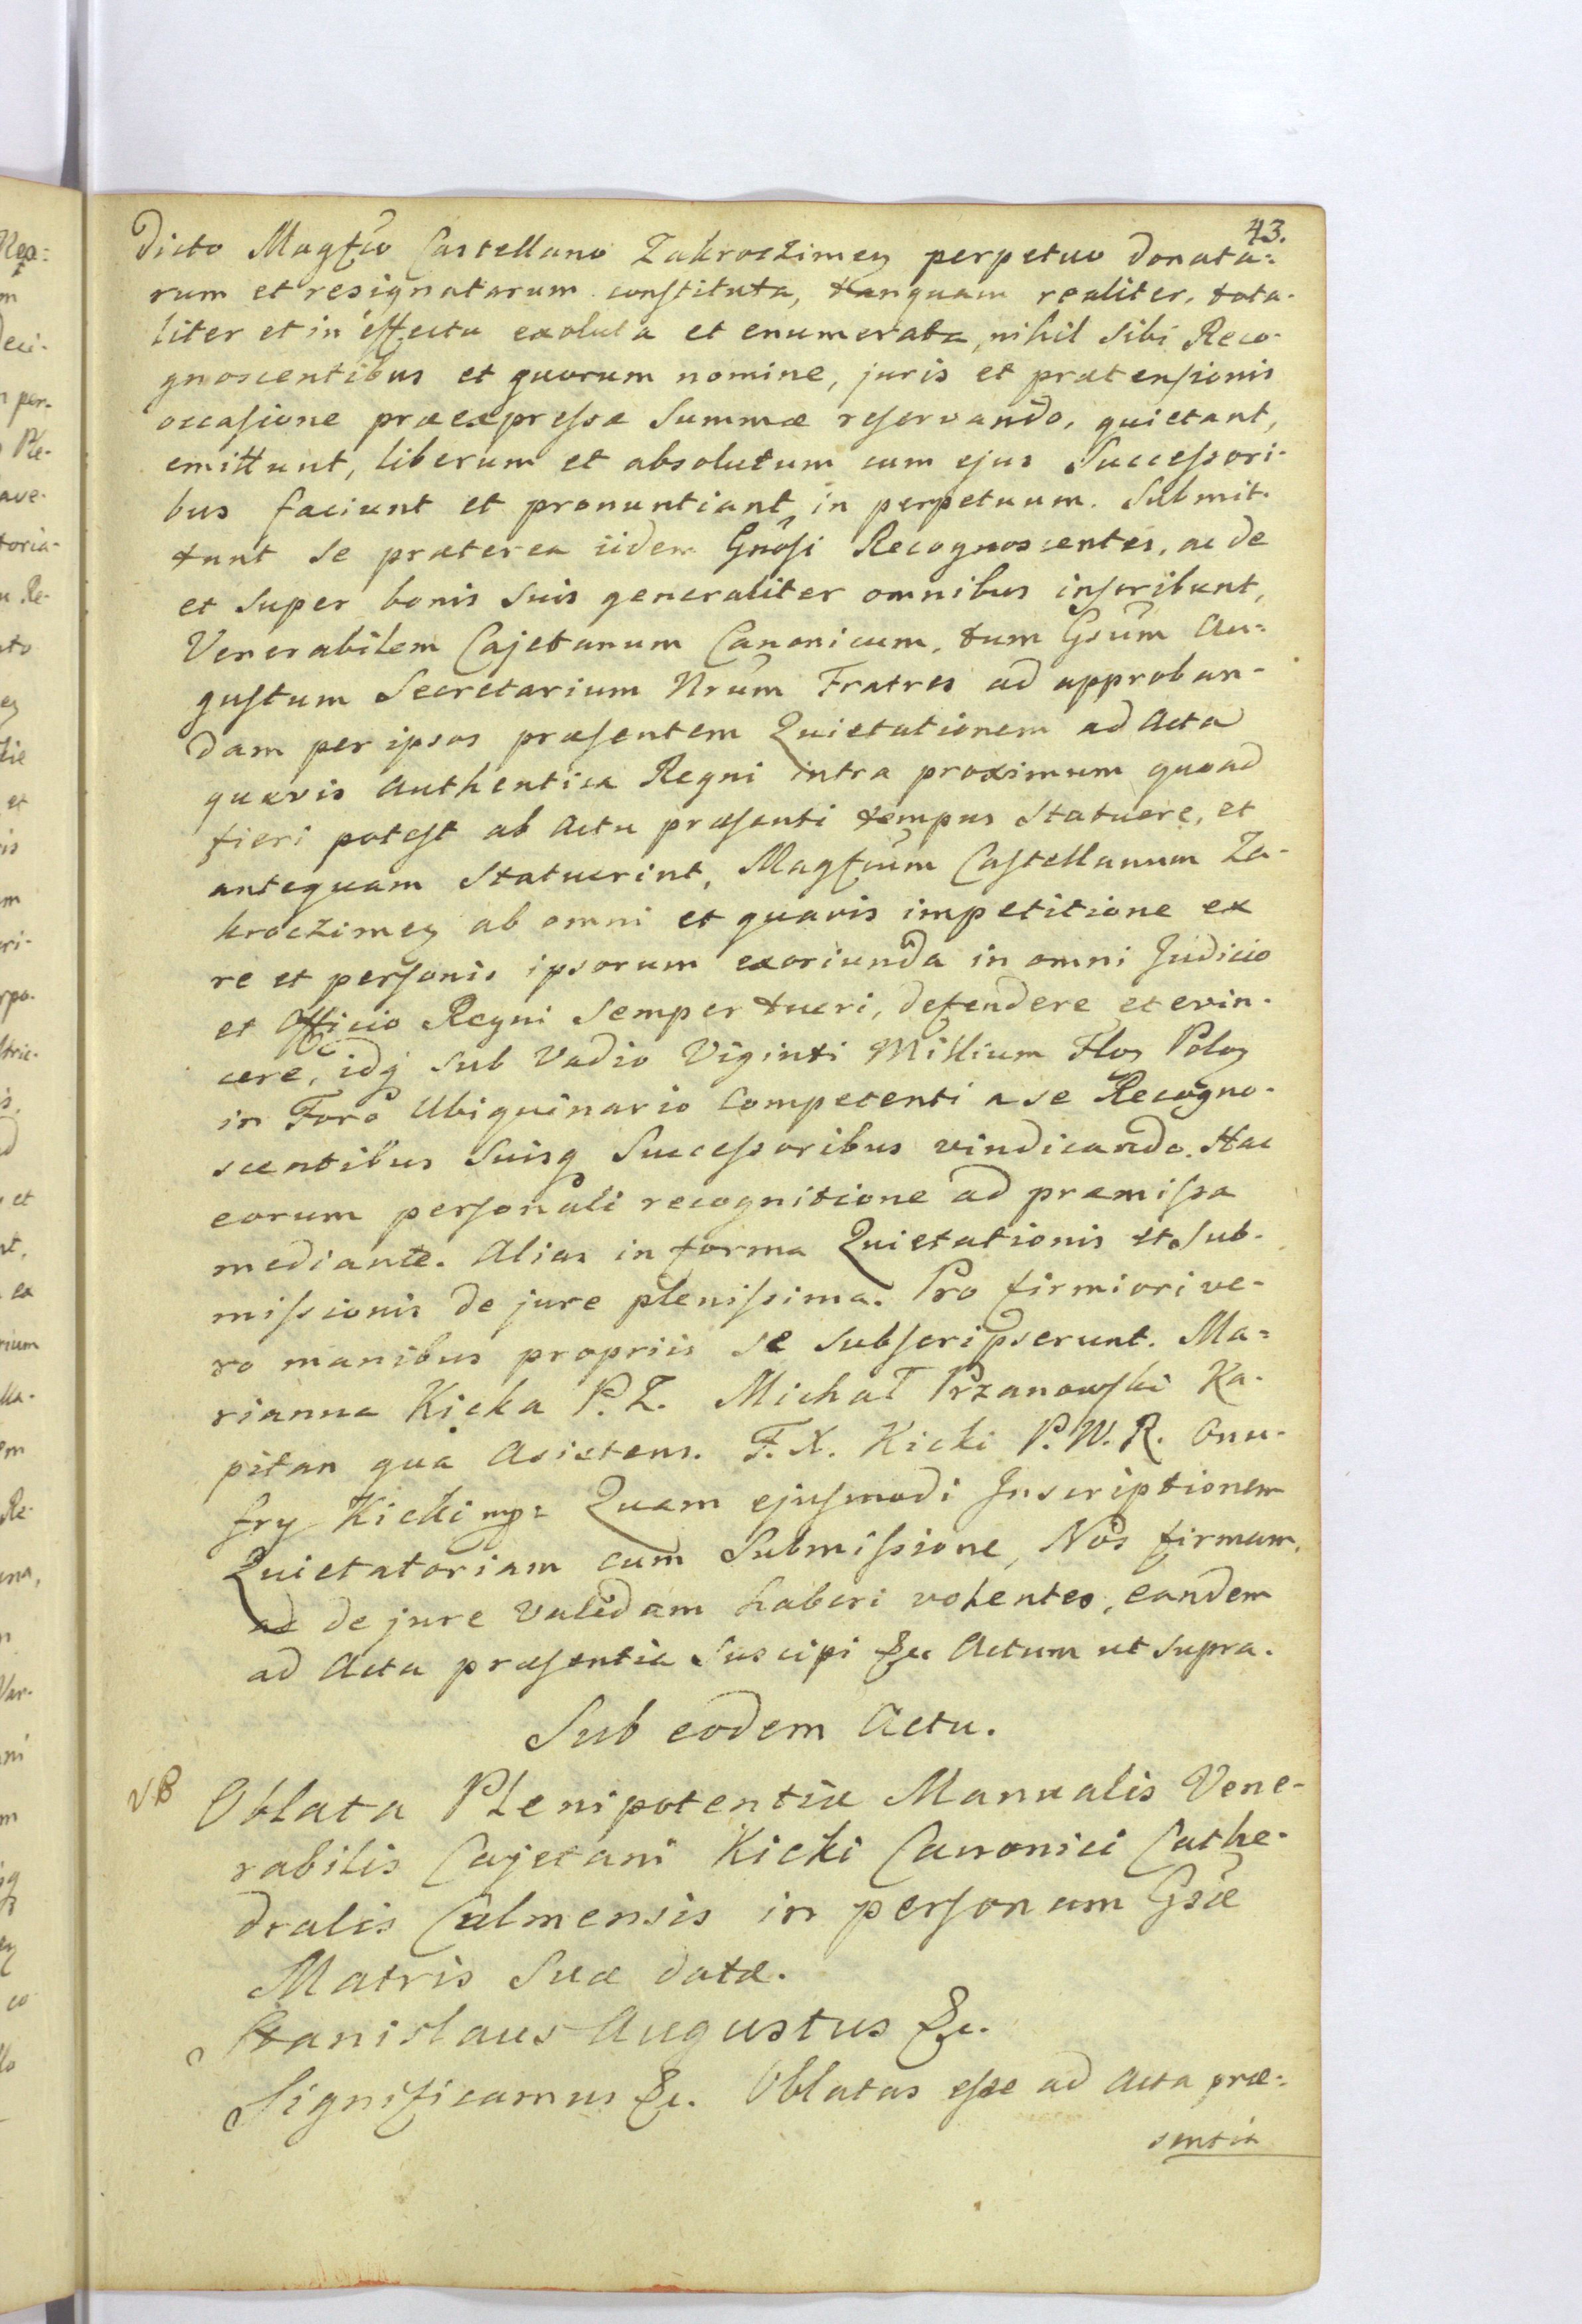 43.
dicto Magfico Castellano Zakroczimen perpetuo donata=
rum et resignatarum constituta, tanquam realiter, tota-
liter et in effectu exoluta et enumerata, nihil sibi Reco-
gnoscentibus et quorum nomine, juris et prætensionis
occasione præexpressæ Summæ reservando, quietant,
emittunt, liberum et absolutum cum ejus Successori-
bus faciunt et pronuntiant in perpetuum. Submit-
tunt se præterea iidem Gnosi Recognoscentes, ac de
et super bonis suis generaliter omnibus inscribunt,
Venerabilem Cajetanum Canonicum, tum Gsum Au-
gustum Secretarium Nrum Fratres ad approban-
dam per ipsos præsentem Quietationem ad Acta
quævis Authentica Regni intra proximum quoad
fieri potest ab Actu præsenti tempus Statuere, et
antequam Statuerint, Magficum Castellanum Za-
kroczimen ab omni et quavis impetitione ex
re et personis ipsorum exoriunda in omni Judicio
et Officio Regni semper tueri, defendere et evin-
cere, idq sub Vadio Viginti Millium Flor Polon
in Foro Ubiquinario Competenti a se Recogno-
scentibus Suisq Successoribus vindicando. Hac
eorum personali recognitione ad præmissa
mediante. Alias in forma Quietationis et Sub-
missionis de jure plenissima. Pro firmiori ve-
ro manibus propriis se subscripserunt. Ma=
rianna Kicka P. Z. Michał Przanowski Ka-
pitan qua Asistens. F. X. Kicki P. W. R. Onu-
fry Kicki mp= Quam ejusmodi Inscriptionem
Quietatoriam cum Submissione, Nos firmam,
ac de jure validam haberi volentes, eandem
ad Acta præsentia Suscipi &c Actum ut supra.
Sub eodem Actu.
NB Oblata Plenipotentiæ Manualis Vene-
rabilis Cajetani Kicki Canonici Cathe-
dralis Culmensis in personam Gsæ
Matris Suæ datæ.
Stanislaus Augustus &c.
Significamus &c. Oblatas esse ad Acta præ-
sentia